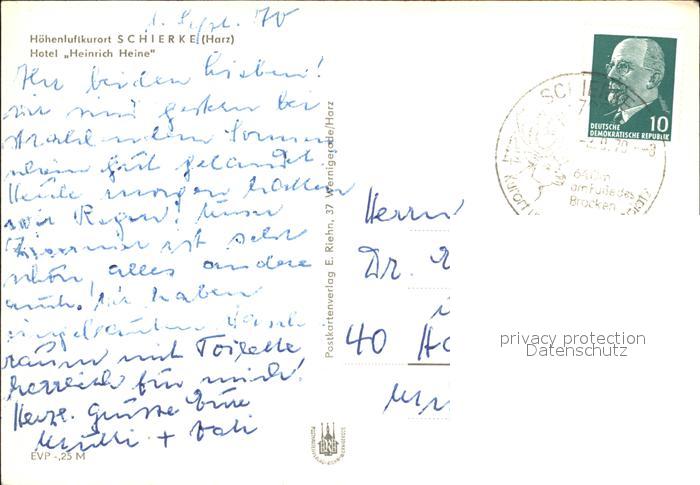 1. Sept. 70
Höhenluftkurort SCHIERKE (Harz)
Hotel „Heinrich Heine"
Ihr beiden Lieben!
wir sind gestern bei
strahlendem Sonnen-
schein gut gelandet.
Heute morgen hatten
wir Regen! Unser
Zimmer ist sehr
schön, alles andere
auch. Wir haben
eingebauten Wasch-
raum mit Toilette
herrlich für mich!
Herzl. Grüsse Eure
Mutti + Vati
EVP -,25 M
Postkartenverlag E. Riehn, 37 Wernigerode/Harz
DEUTSCHE
DEMOKRATISCHE REPUBLIK
10
SCHIERKE
70-8
640m
am Fuße des
Brocken
Kurort
Herrn
Dr.
40
privacy protection
Datenschutz